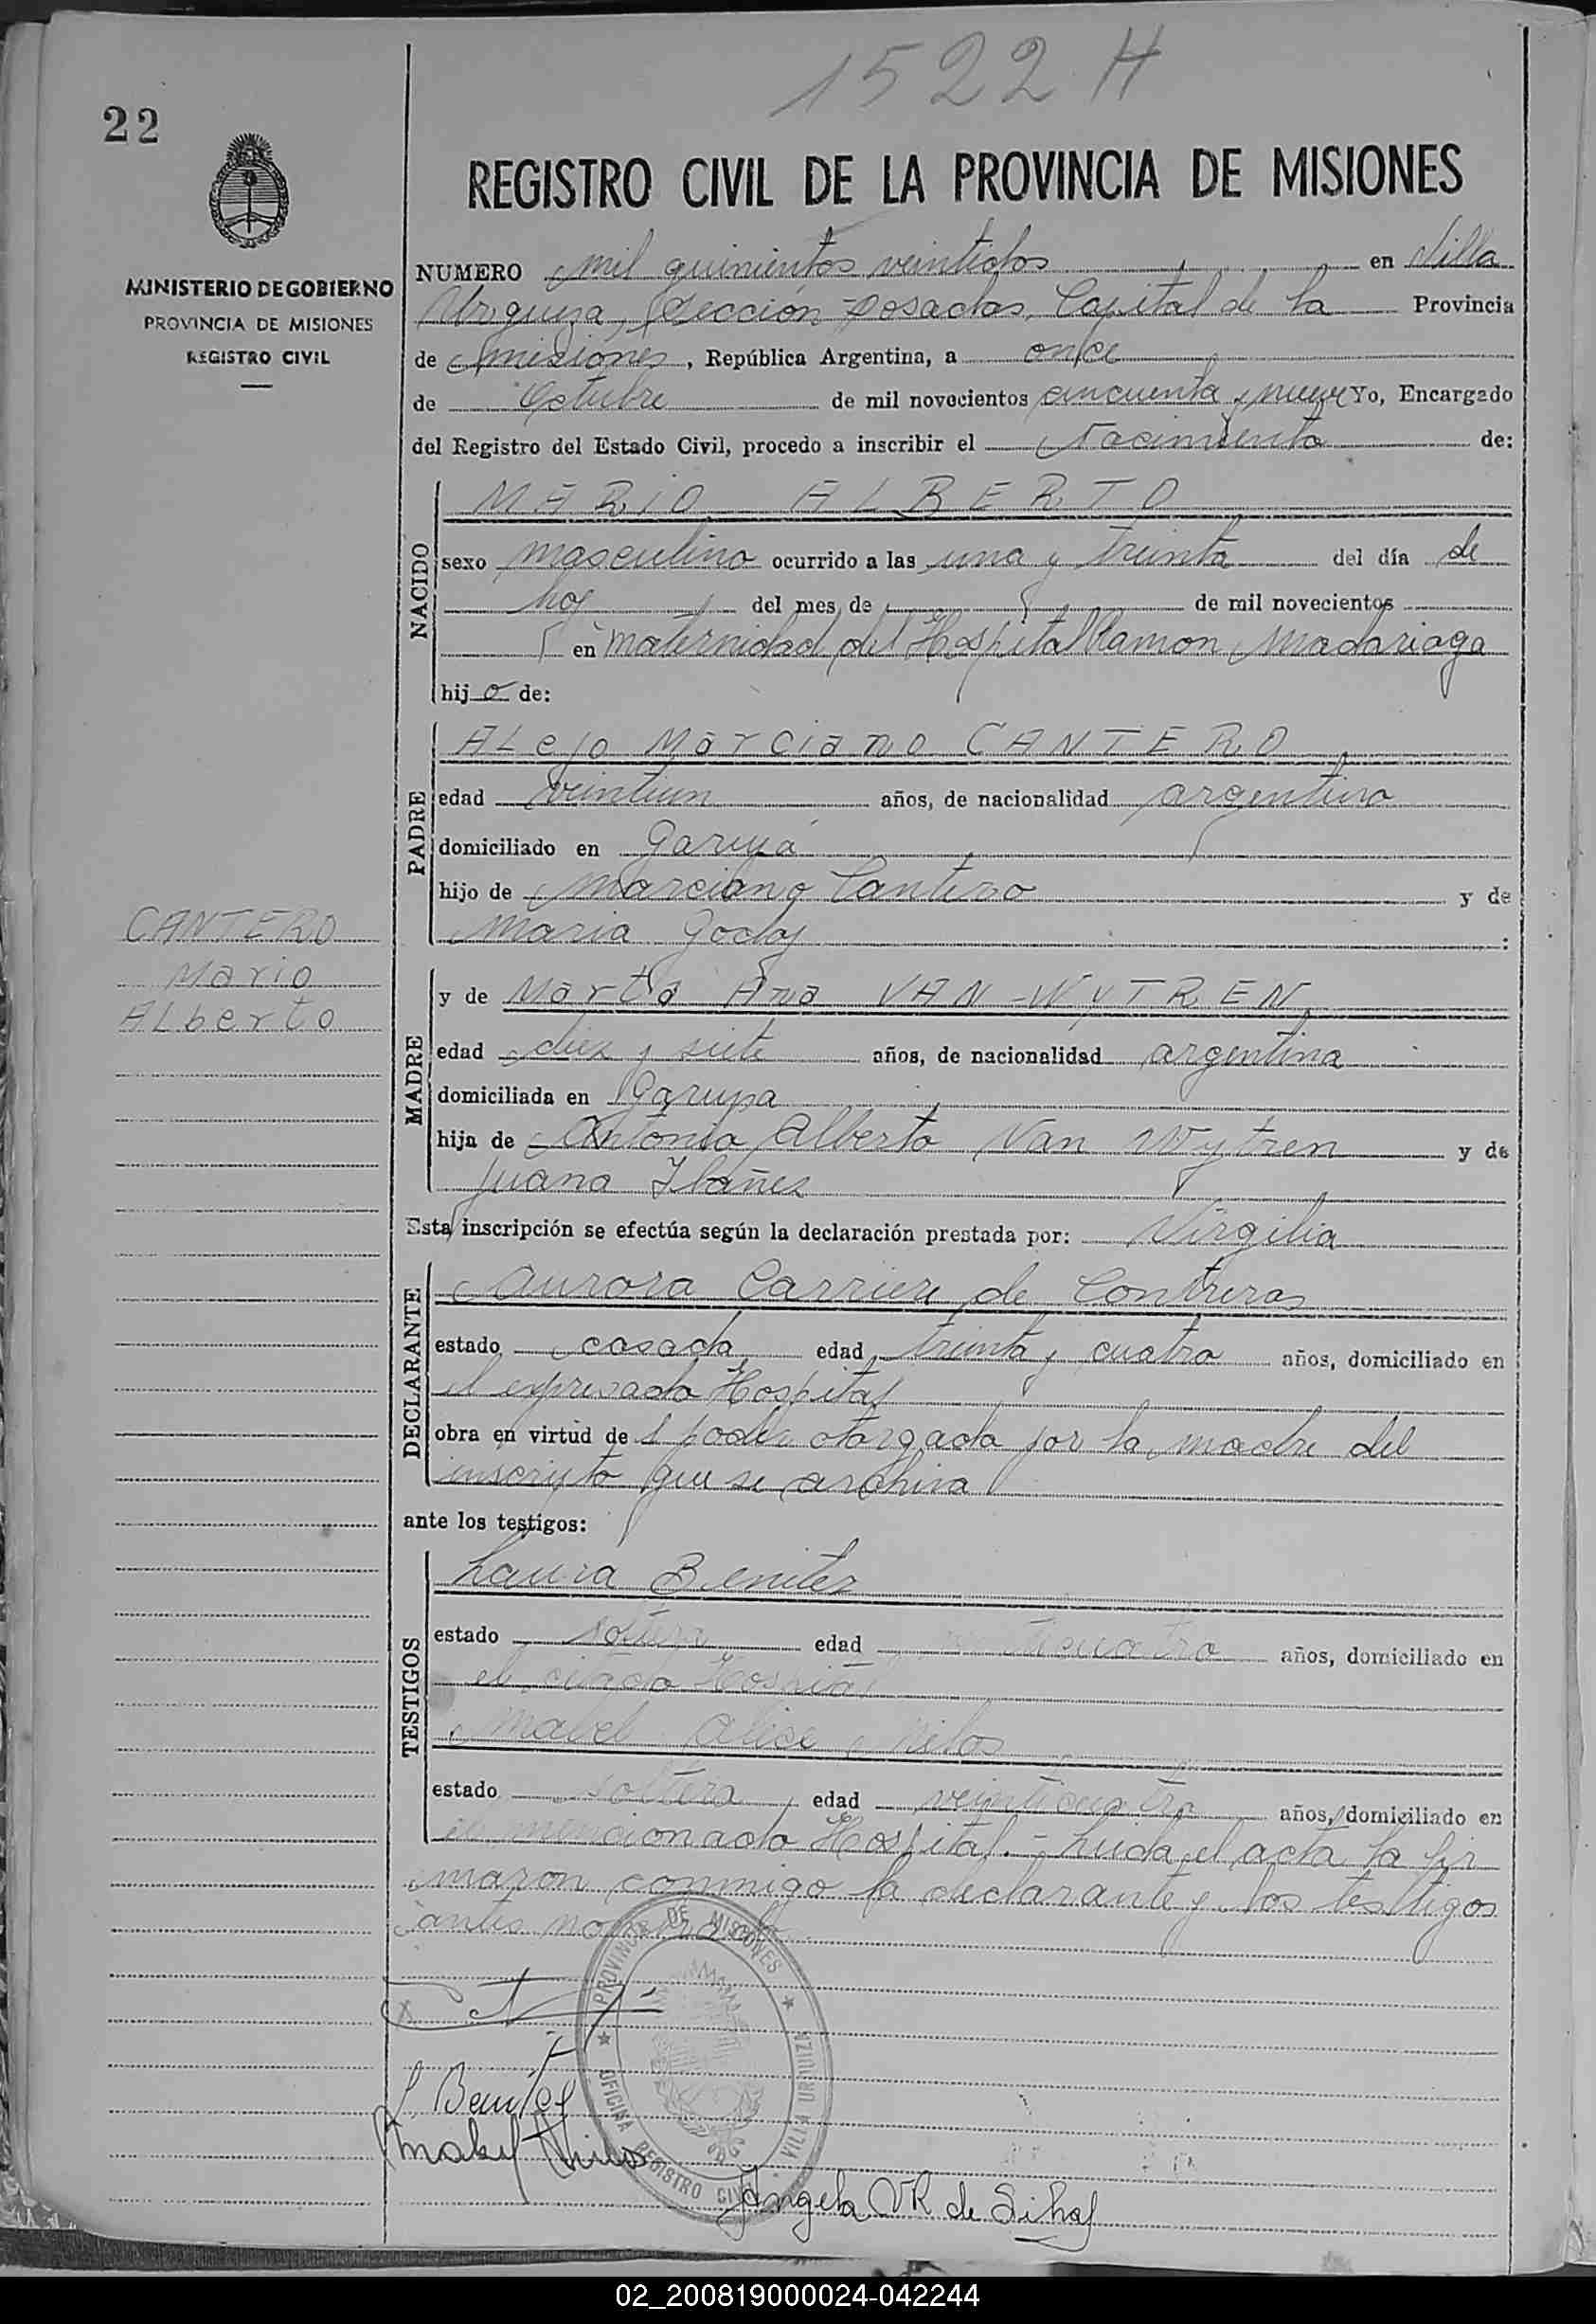 1522 H
22
REGISTRO CIVIL DE LA PROVINCIA DE MISIONES
MINISTERIO DE GOBIERNO
PROVINCIA DE MISIONES
REGISTRO CIVIL
NUMERO mil quinientos veintidos en Villa
Urquiza, Sección Posadas, Capital de la Provincia
de Misiones, República Argentina, a once
de Octubre de mil novecientos cincuenta y nueve Yo, Encargado
del Registro del Estado Civil, procedo a inscribir el Nacimiento de:
NACIDO
MARIO ALBERTO
sexo masculino ocurrido a las una y treinta del día de
hoy del mes de de mil novecientos
en maternidad del Hospital Ramon Madariaga
hijo de:
PADRE
ALejo Marciano CANTERO
edad veintiun años, de nacionalidad argentino
domiciliado en Garupá
hijo de Marciano Cantero y de
Maria Godoy :
CANTERO
Mario
ALberto
MADRE
y de Marta Ana VAN-WYTREN
edad diez y siete años, de nacionalidad argentina
domiciliada en Garupa
hija de Antonio Alberto Van Wytren y de
Juana Ibañez
Esta inscripción se efectúa según la declaración prestada por: Virgilia
DECLARANTE
Aurora Carriere de Contreras
estado casada edad treinta y cuatro años, domiciliado en
el expresado Hospital
obra en virtud del poder otorgado por la madre del
inscripto que se archiva
ante los testigos:
TESTIGOS
Laura Benitez
estado soltera edad veinticuatro años, domiciliado en
el citado Hospital
Mabel Alice
estado soltera edad veinticuatro años, domiciliado en
el mencionado Hospital.- Leida el acta la fir
maron conmigo la declarante y los testigos
antes nombrados
PROVINCIA DE MISIONES
OFICINA REGISTRO CIVIL
VILLA URQUIZA
L. Benitez
Mabel
Angela VR de Sihaf
02_200819000024-042244